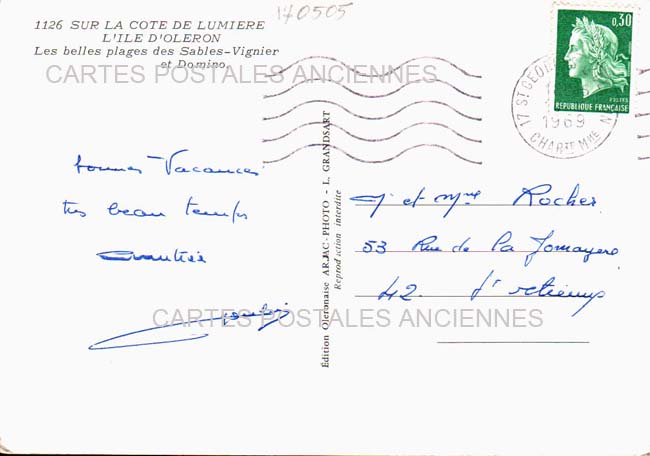 170505
1126 SUR LA COTE DE LUMIERE
L'ILE D'OLERON
Les belles plages des Sables-Vignier
et Domino.
CARTES POSTALES ANCIENNES
0,30
POSTES
REPUBLIQUE FRANÇAISE
17 ST GEO
1969
CHARTE MME
bonnes Vacances
très beau temps
Amitiés
Edition Oleronaise ARJAC-PHOTO - L. GRANDSART
Reproduction interdite
Mr et Mme Rocher
53 Rue de la Jomayere
42. St Etienne
CARTES POSTALES ANCIENNES